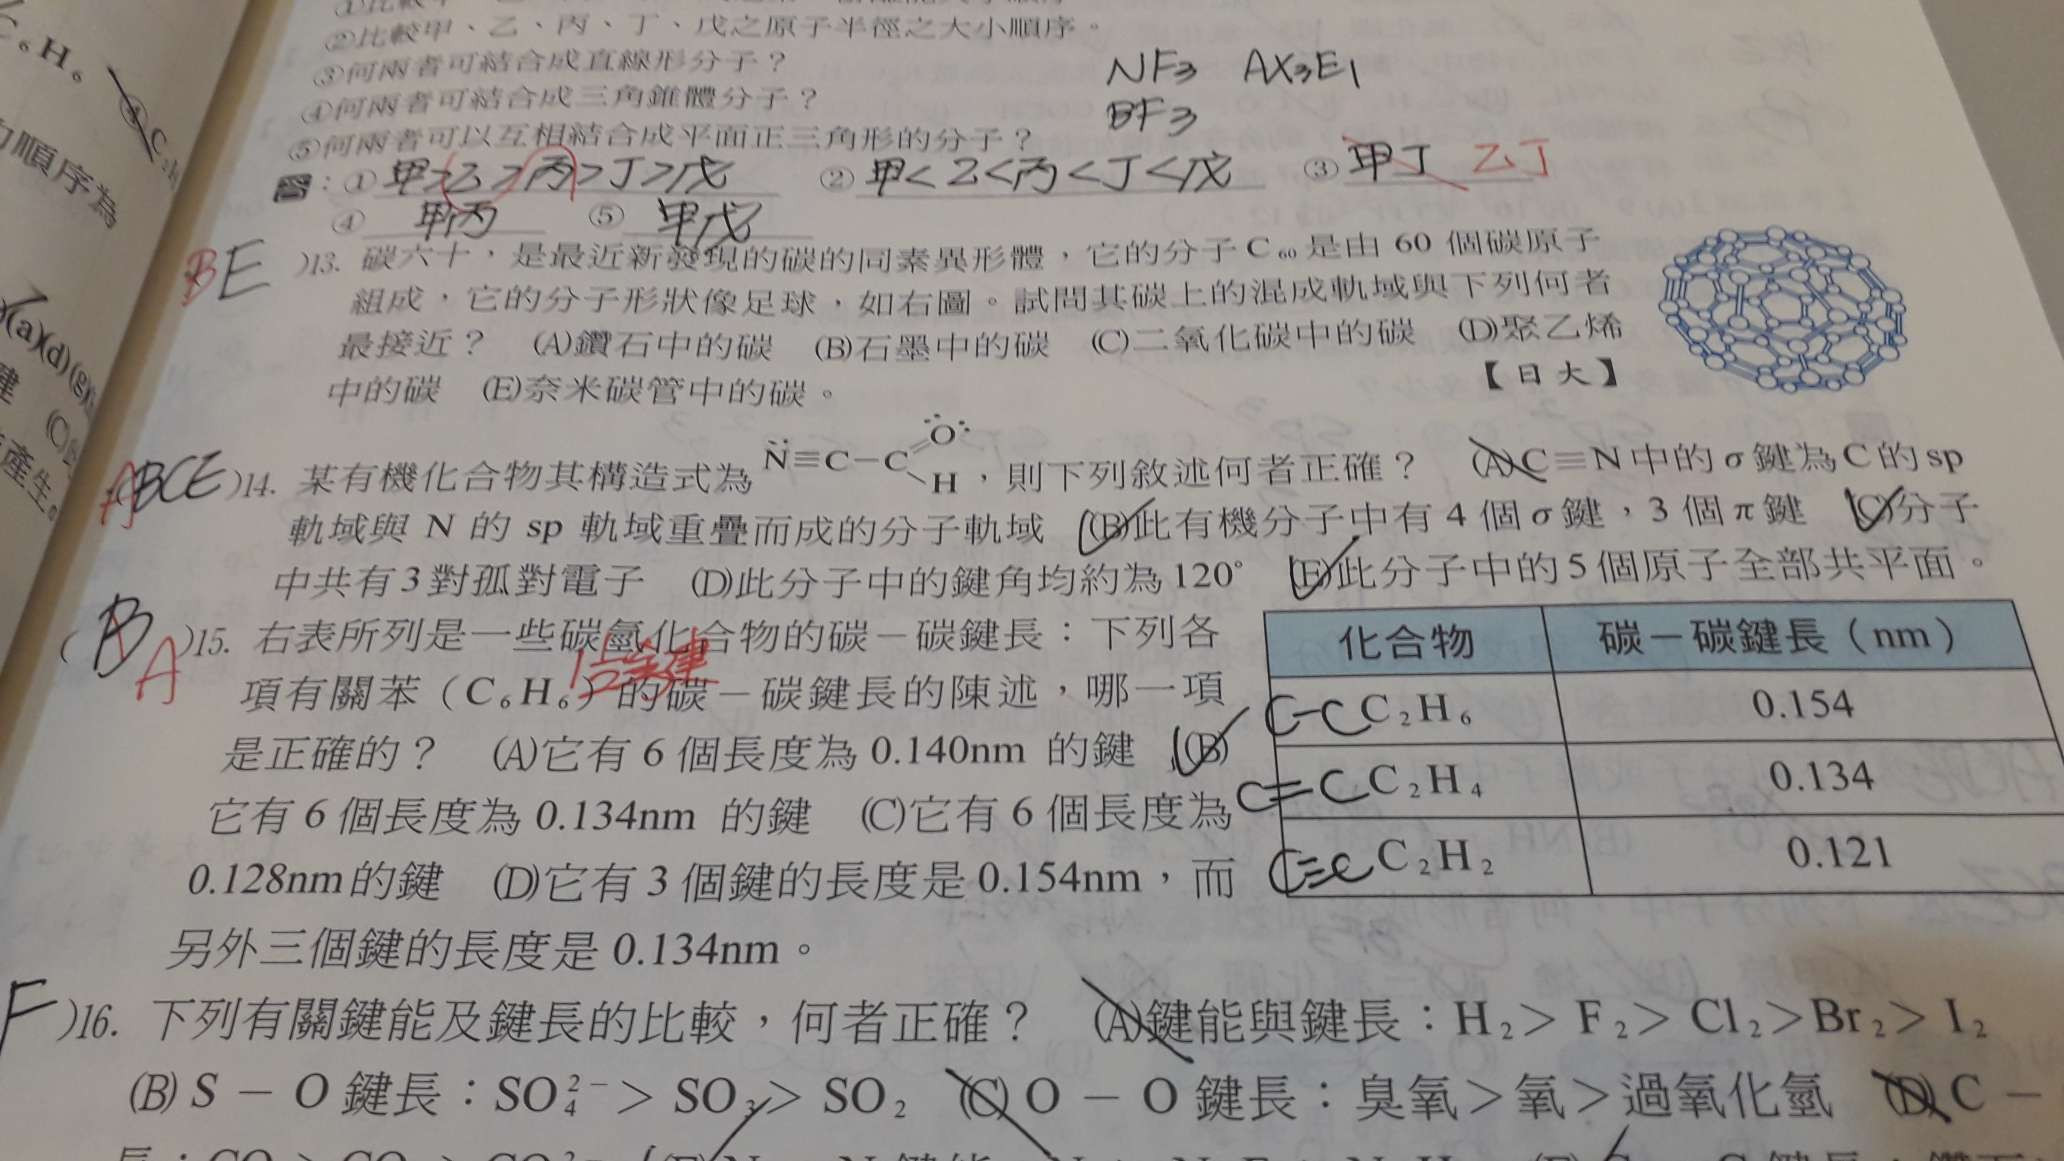 ②比較甲、乙、丙、丁、戊之原子半徑之大小順序。
③何兩者可結合成直線形分子？
④何兩者可結合成三角錐體分子？
⑤何兩者可以互相結合成平面正三角形的分子？
NF3 AX3E1
BF3
答：① 甲>乙>丙>丁>戊 ② 甲<乙<丙<丁<戊 ③ 甲丁 乙丁
④ 甲丙 ⑤ 甲戊
C₆H₆
順序為
(a)(d)(g)
產生。
BE )13. 碳六十，是最近新發現的碳的同素異形體，它的分子C₆₀是由 60 個碳原子
組成，它的分子形狀像足球，如右圖。試問其碳上的混成軌域與下列何者
最接近？ (A)鑽石中的碳 (B)石墨中的碳 (C)二氧化碳中的碳 (D)聚乙烯
中的碳 (E)奈米碳管中的碳。 【日大】
ABCE )14. 某有機化合物其構造式為 N≡C－C O H，則下列敘述何者正確？ (A)C≡N中的σ鍵為C的sp
軌域與 N 的 sp 軌域重疊而成的分子軌域 (B)此有機分子中有 4 個σ鍵，3 個π鍵 (C)分子
中共有3對孤對電子 (D)此分子中的鍵角均約為120° (E)此分子中的5個原子全部共平面。
( B A )15. 右表所列是一些碳氫化合物的碳－碳鍵長：下列各
項有關苯（C₆H₆）的碳－碳鍵長的陳述，哪一項
是正確的？ (A)它有 6 個長度為 0.140nm 的鍵 (B)
它有 6 個長度為 0.134nm 的鍵 (C)它有 6 個長度為
0.128nm的鍵 (D)它有 3 個鍵的長度是 0.154nm，而
另外三個鍵的長度是 0.134nm。
化合物 碳－碳鍵長（nm）
C-C C₂H₆ 0.154
C=C C₂H₄ 0.134
C≡C C₂H₂ 0.121
F )16. 下列有關鍵能及鍵長的比較，何者正確？ (A)鍵能與鍵長：H₂> F₂> Cl₂>Br₂> I₂
(B) S － O 鍵長：SO₄²⁻ > SO₃> SO₂ (C) O － O 鍵長：臭氧>氧>過氧化氫 (D) C －